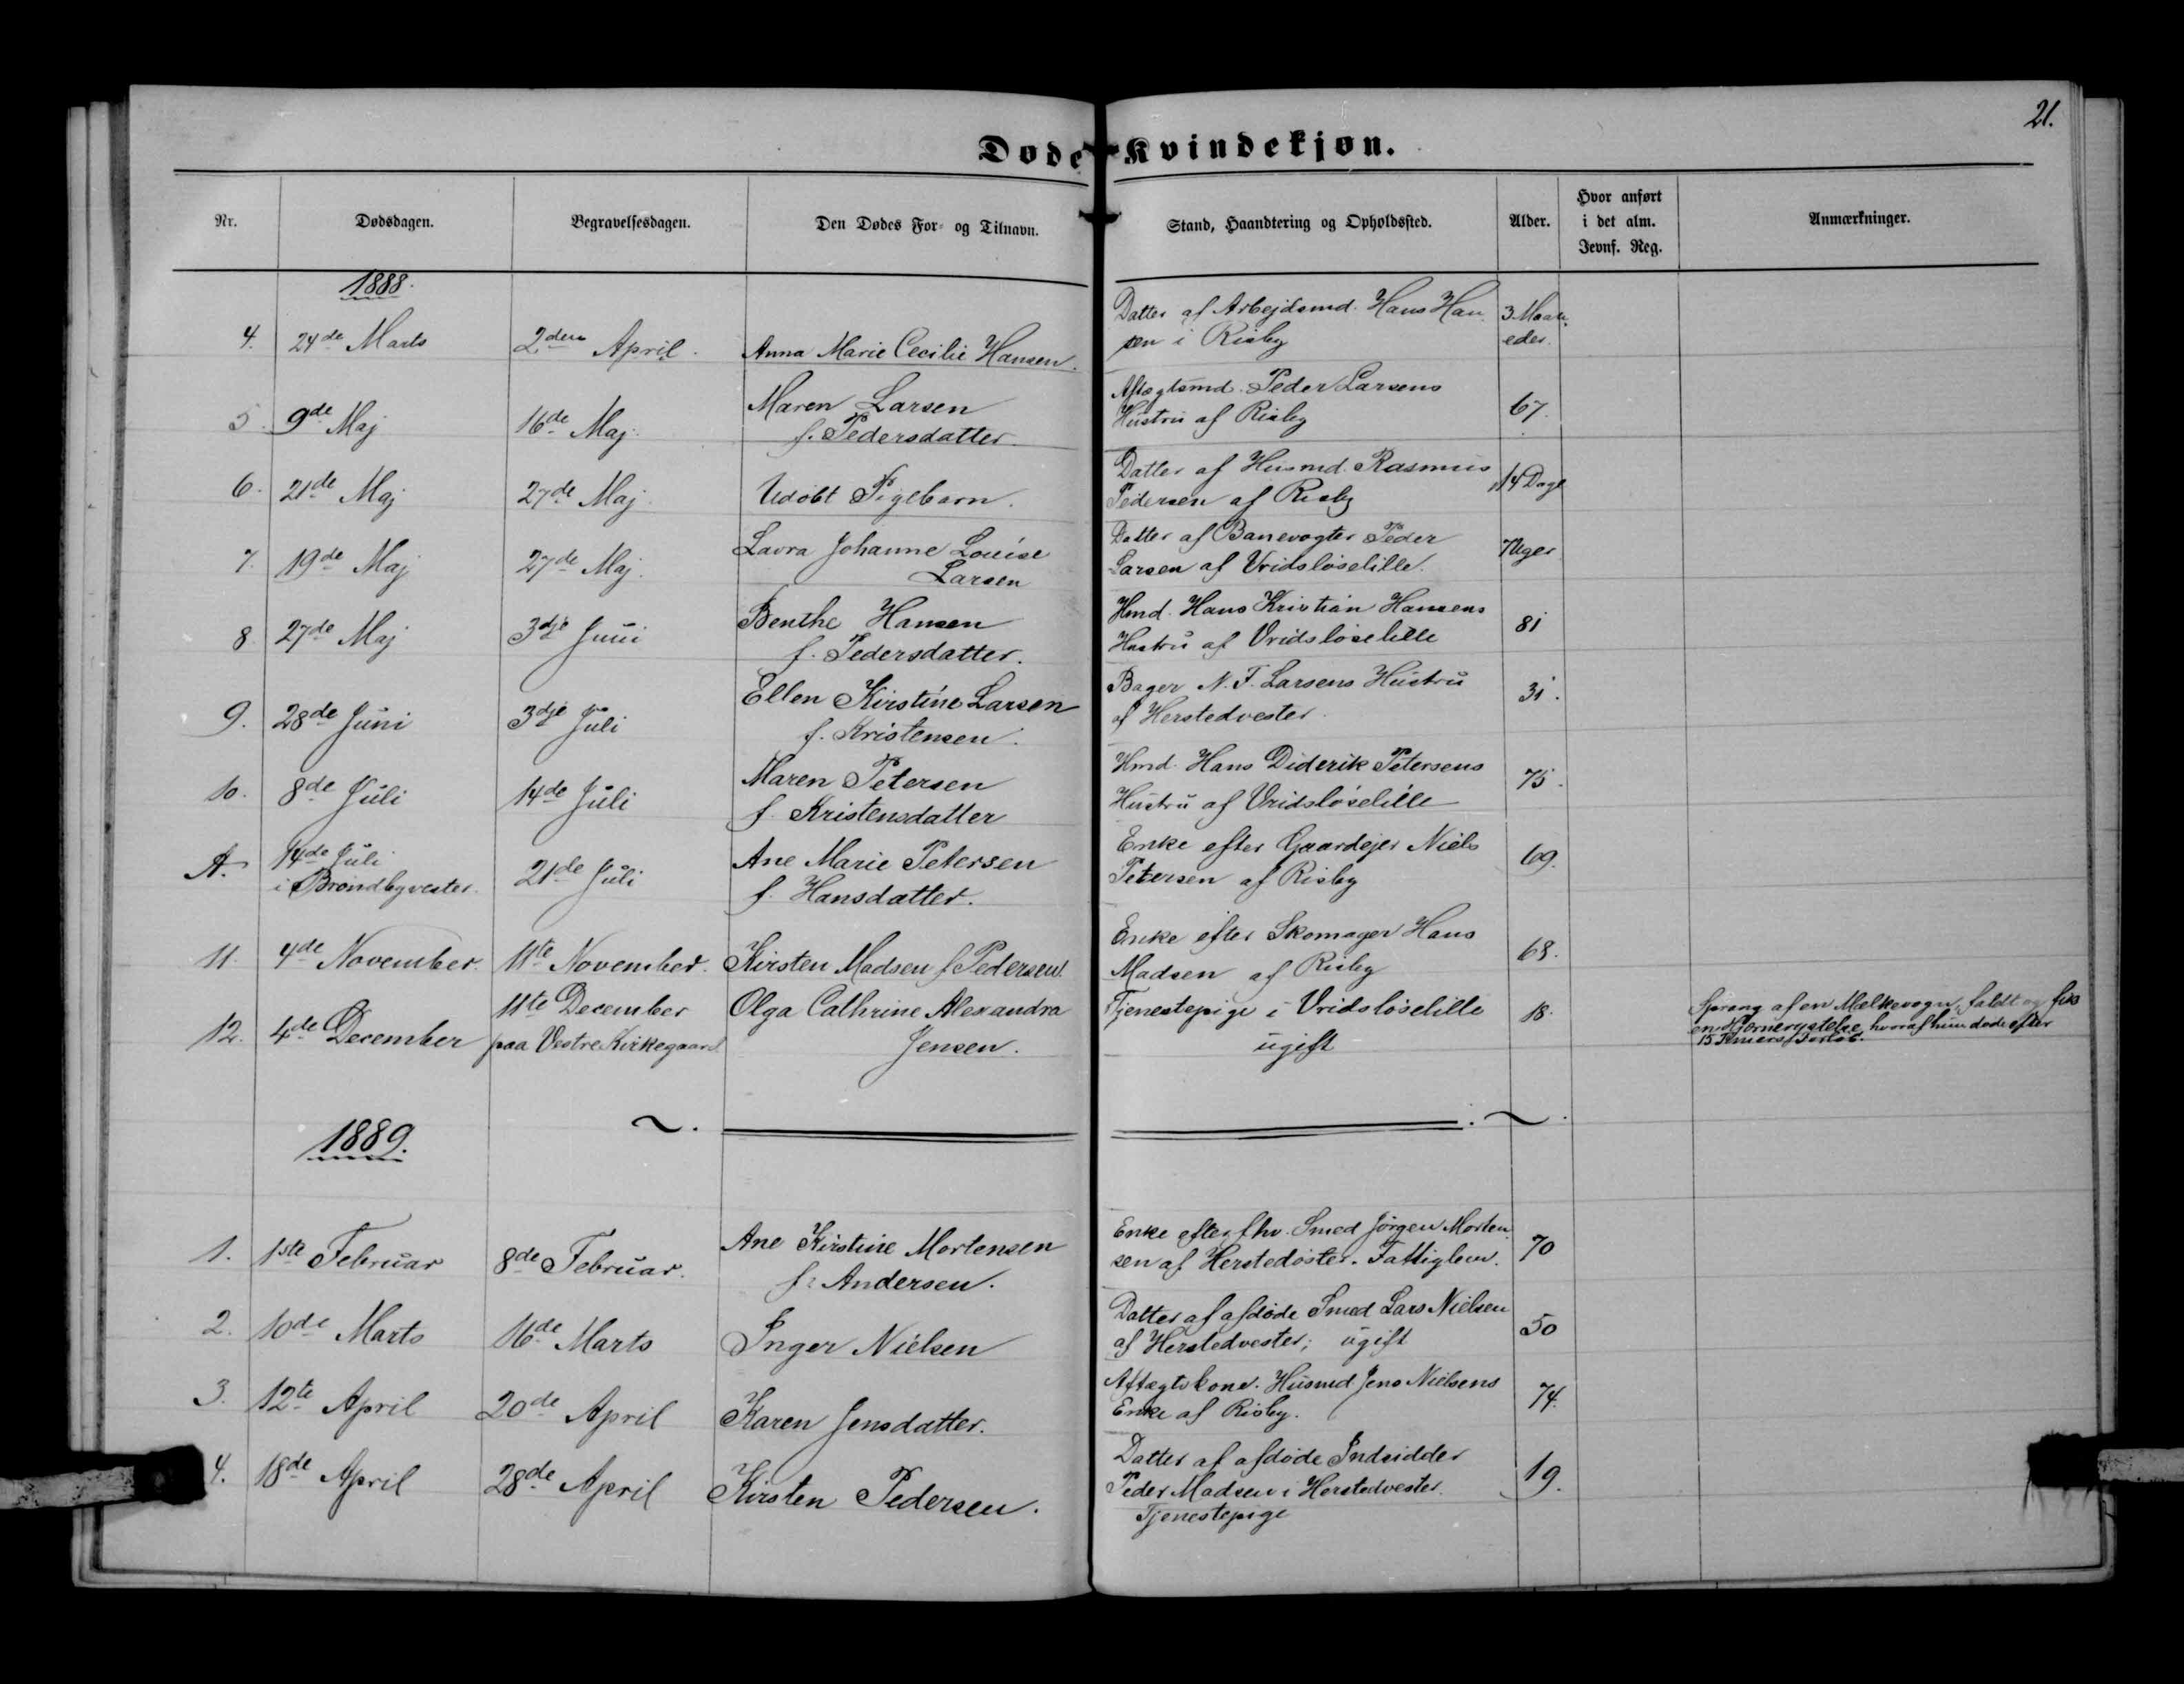 21.
Døde Kvindekjøn.
Nr. Dødsdagen. Begravelsesdagen. Den Dødes For- og Tilnavn. Stand, Haandtering og Opholdssted. Alder. Hvor anført i det alm. Jevnf. Reg. Anmærkninger.
1888.
4. 24de Marts 2den April. Anna Marie Cecilie Hansen. Datter af Arbejdsmd. Hans Han 3 Maan
sen i Risby eder.
5. 9de Maj 16de Maj. Maren Larsen Aftægtsmd. Peder Larsens 67.
f. Pedersdatter. Hustru af Risby
6. 21de Maj 27de Maj. Udøbt Pigebarn. Datter af Husmd. Rasmus 14 Dage
Pedersen af Risby
7. 19de Maj 27de Maj. Lavra Johanne Louise Datter af Banevogter Peder 7 Uger
Larsen Larsen af Vridsløselille.
8. 27de Maj 3dje Juni Benthe Hansen Hmd. Hans Kristian Hansens 81
f. Pedersdatter. Hustru af Vridsløselille
9. 28de Juni 3dje Juli Ellen Kirstine Larsen Bager N. F. Larsens Hustru 31.
f. Kristensen. af Herstedvester.
10. 8de Juli 14de Juli Maren Petersen Hmd. Hans Diderik Petersens 75.
f. Kristensdatter Hustru af Vridsløselille
A. 14de Juli 21de Juli Ane Marie Petersen Enke efter Gaardejer Niels 69.
i Brøndbyvester. f. Hansdatter. Petersen af Risby
11. 4de November. 11te November. Kirsten Madsen f. Pedersen. Enke efter Skomager Hans 68.
Madsen af Risby
12. 4de December 11te December Olga Cathrine Alexandra Tjenestepige i Vridsløselille 18. Sprang af en Mælkevogn, faldt og fik
paa Vestre Kirkegaard. Jensen. ugift en Hjernerystelse, hvoraf hun døde efter
15 Timers Forløb.
1889.
1. 1ste Februar 8de Februar. Ane Kirstine Mortensen Enke efter fhv. Smed Jørgen Morten 70
f. Andersen. sen af Herstedøster. Fattiglem.
2. 10de Marts 16de Marts Inger Nielsen Datter af afdøde Smed Lars Nielsen 50
af Herstedvester; ugift
3. 12te April 20de April Karen Jensdatter. Aftægtskone. Husmd Jens Nielsens 74.
Enke af Risby.
4. 18de April 28de April Kirsten Pedersen. Datter af afdøde Indsidder 19.
Peder Madsen i Herstedvester.
Tjenestepige